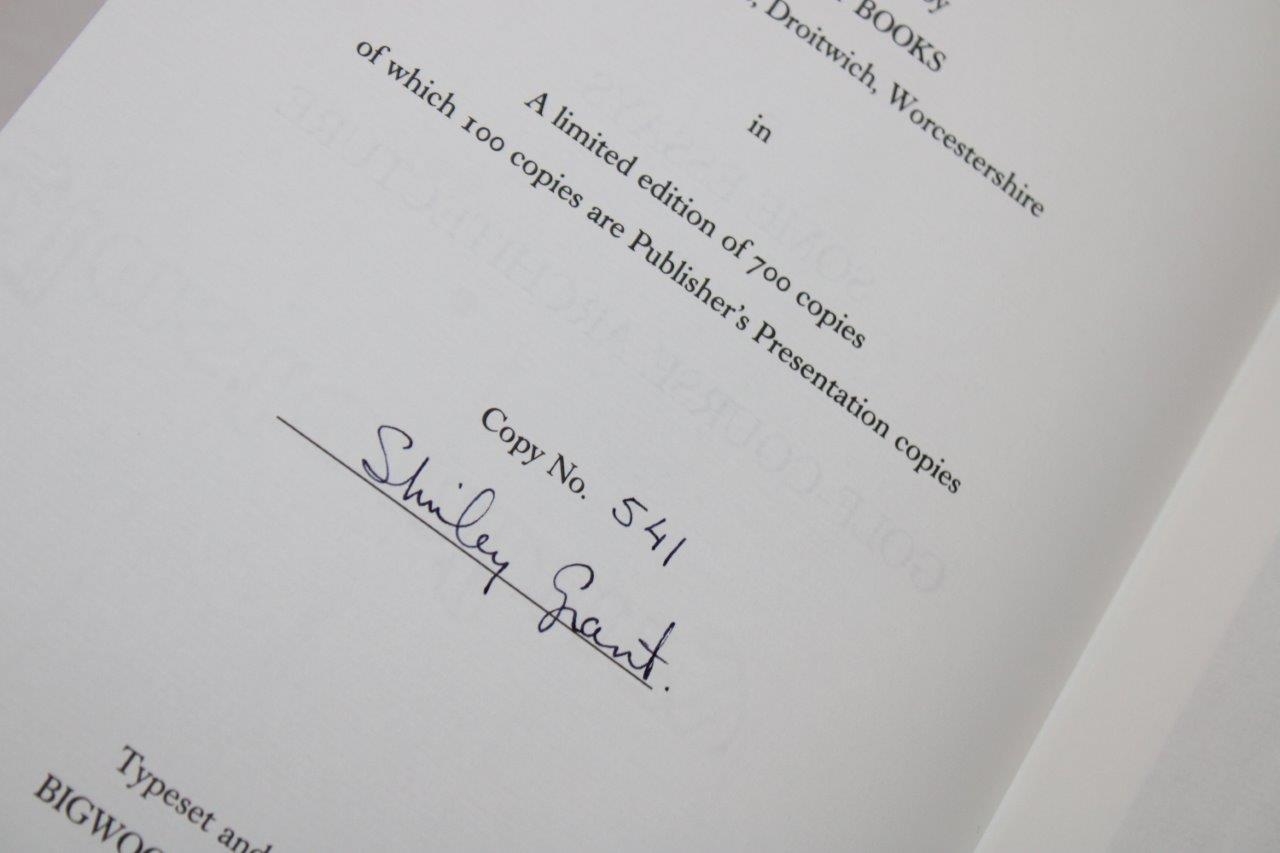 by
BOOKS
, Droitwich, Worcestershire
in
A limited edition of 700 copies
of which 100 copies are Publisher's Presentation copies
Copy No. 541
Shirley Grant.
Typeset and
SOME ESSAYS
GOLF-COURSE ARCHITECTURE